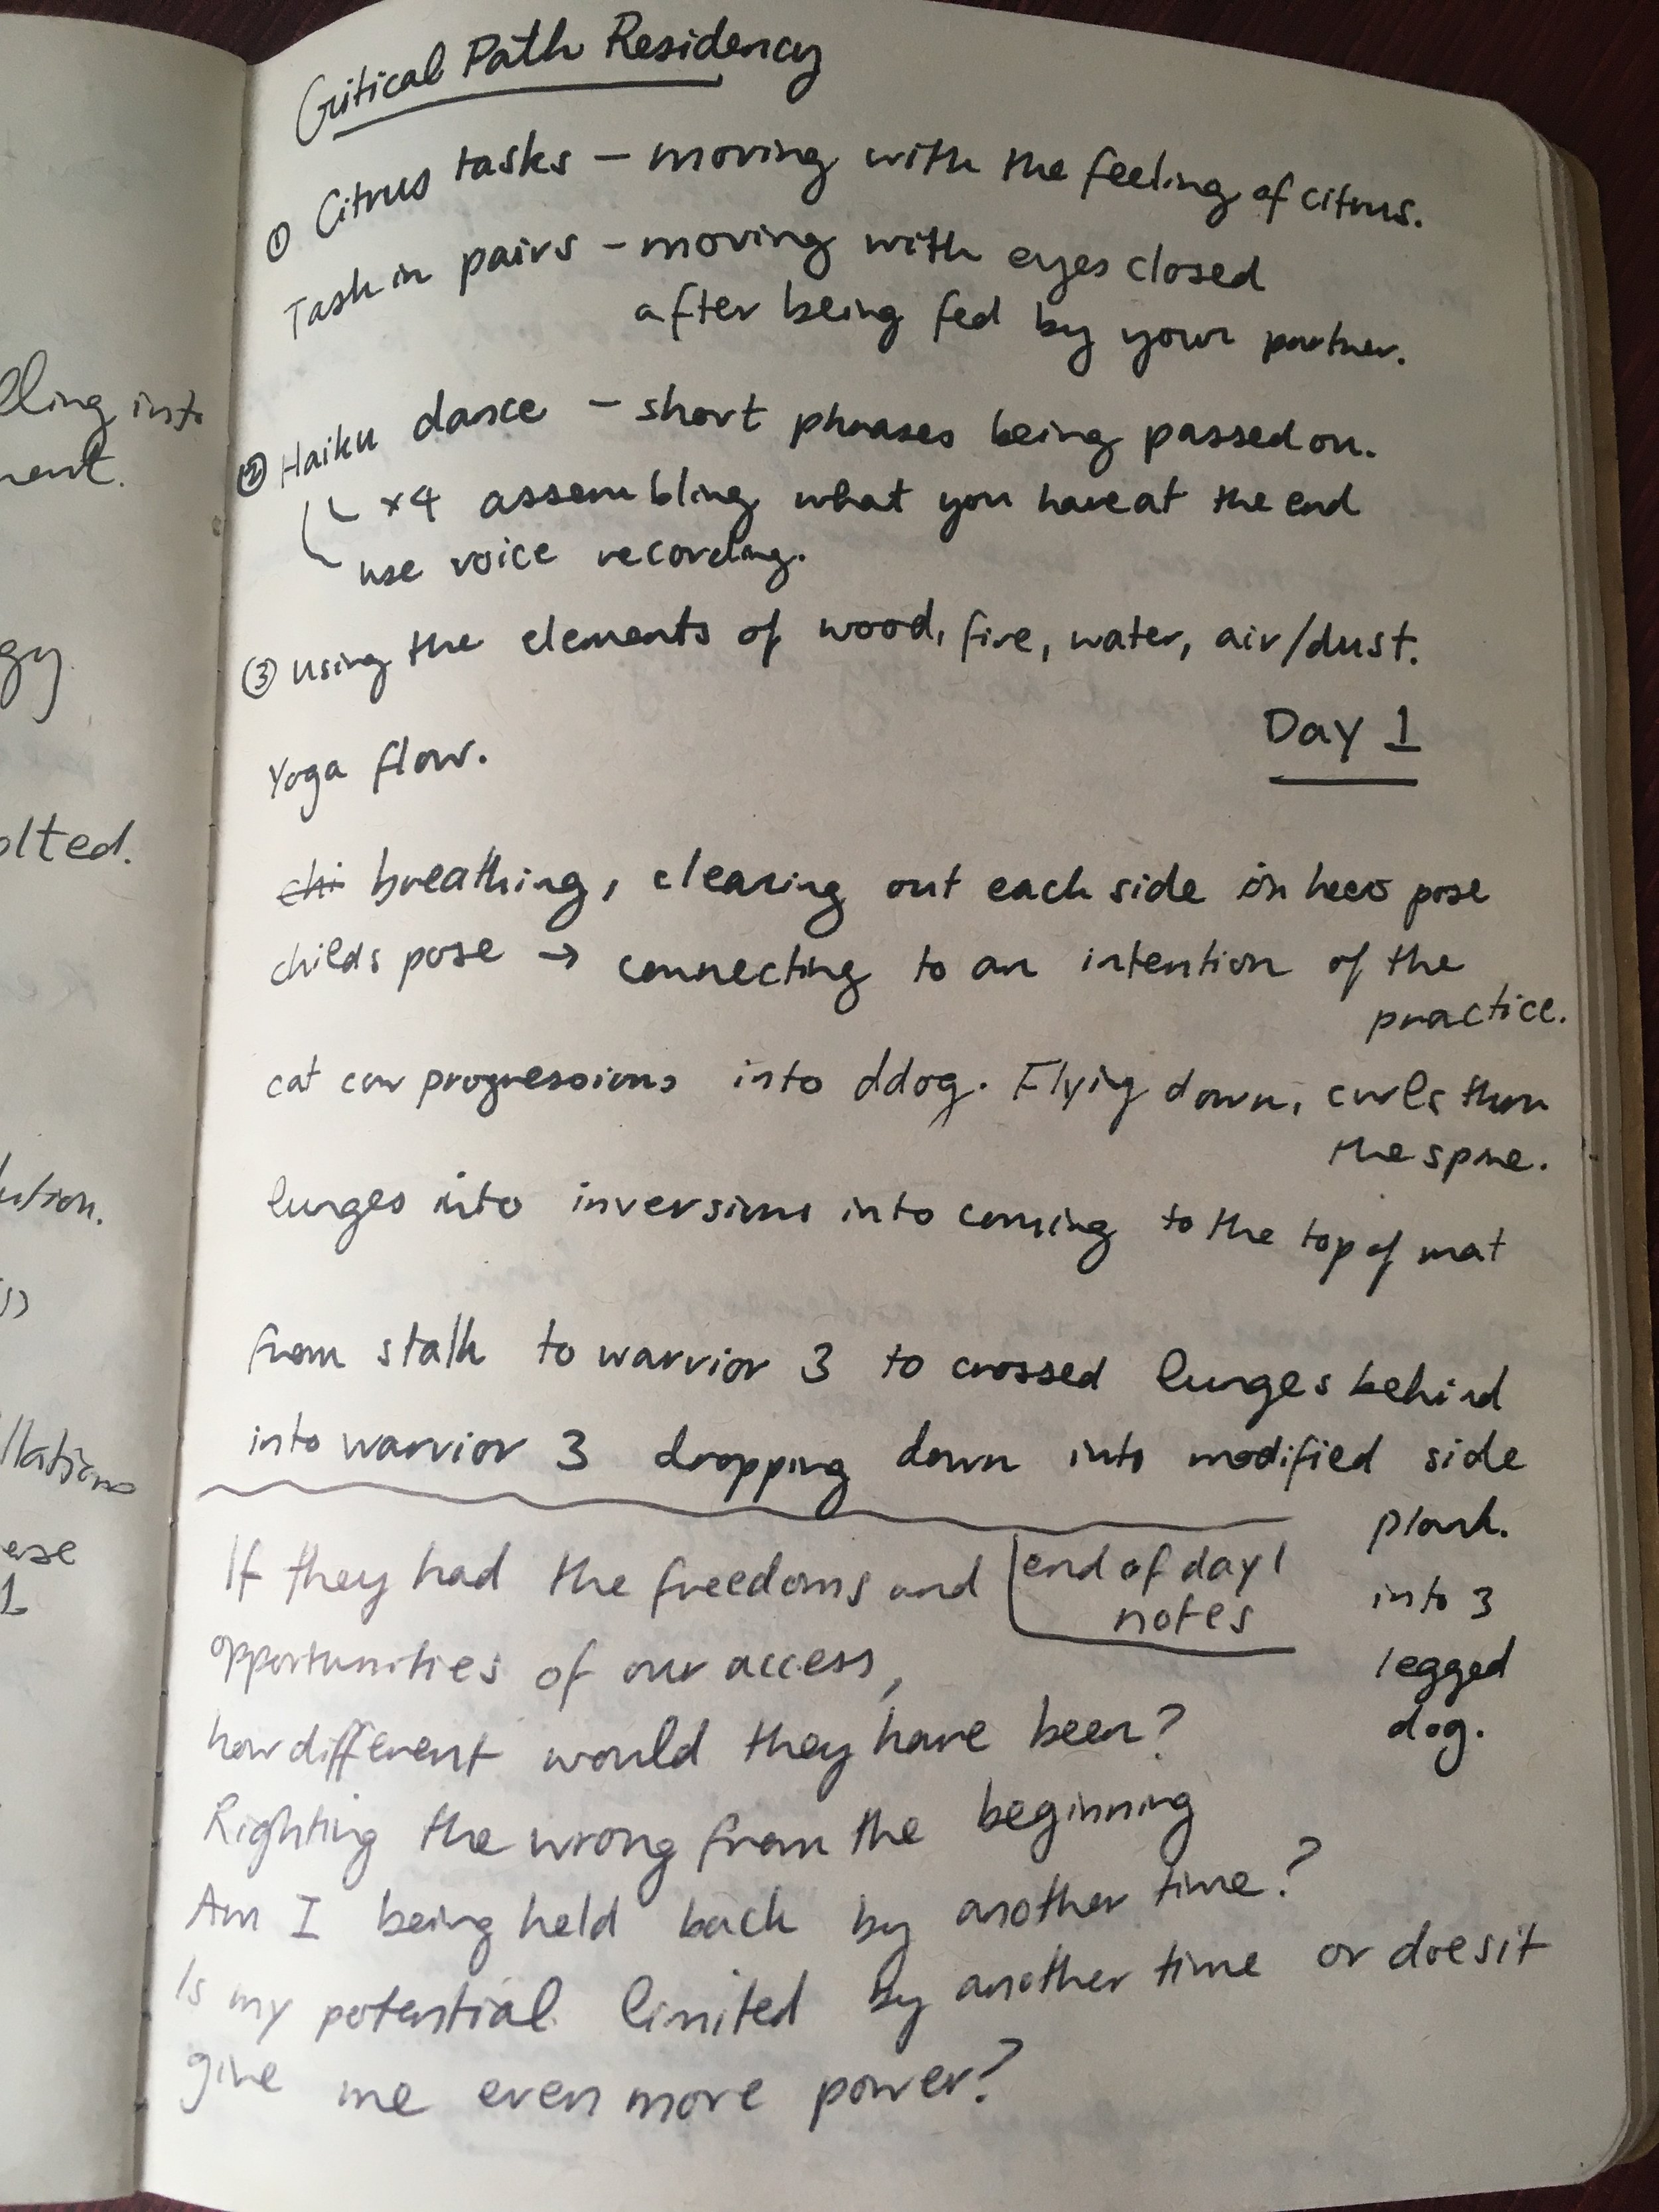 Critical Path Residency
① Citrus tasks – moving with the feeling of citrus.
Task in pairs – moving with eyes closed
after being fed by your partner.
② Haiku dance – short phrases being passed on.
x4 assembling what you have at the end
use voice recording.
③ using the elements of wood, fire, water, air/dust.
Day 1
Yoga flow.
chi breathing, clearing out each side in hero pose
childs pose → connecting to an intention of the
practice.
cat cow progressions into ddog. Flying down, curls thru
the spine.
lunges into inversions into coming to the top of mat
from stalk to warrior 3 to crossed lunges behind
into warrior 3 dropping down into modified side
plank.
into 3
legged
dog.
end of day 1
notes
If they had the freedoms and
opportunities of our access,
how different would they have been?
Righting the wrong from the beginning
Am I being held back by another time?
Is my potential limited by another time or does it
give me even more power?
lling into
nent.
gy.
olted.
lution.
llations
ase
1